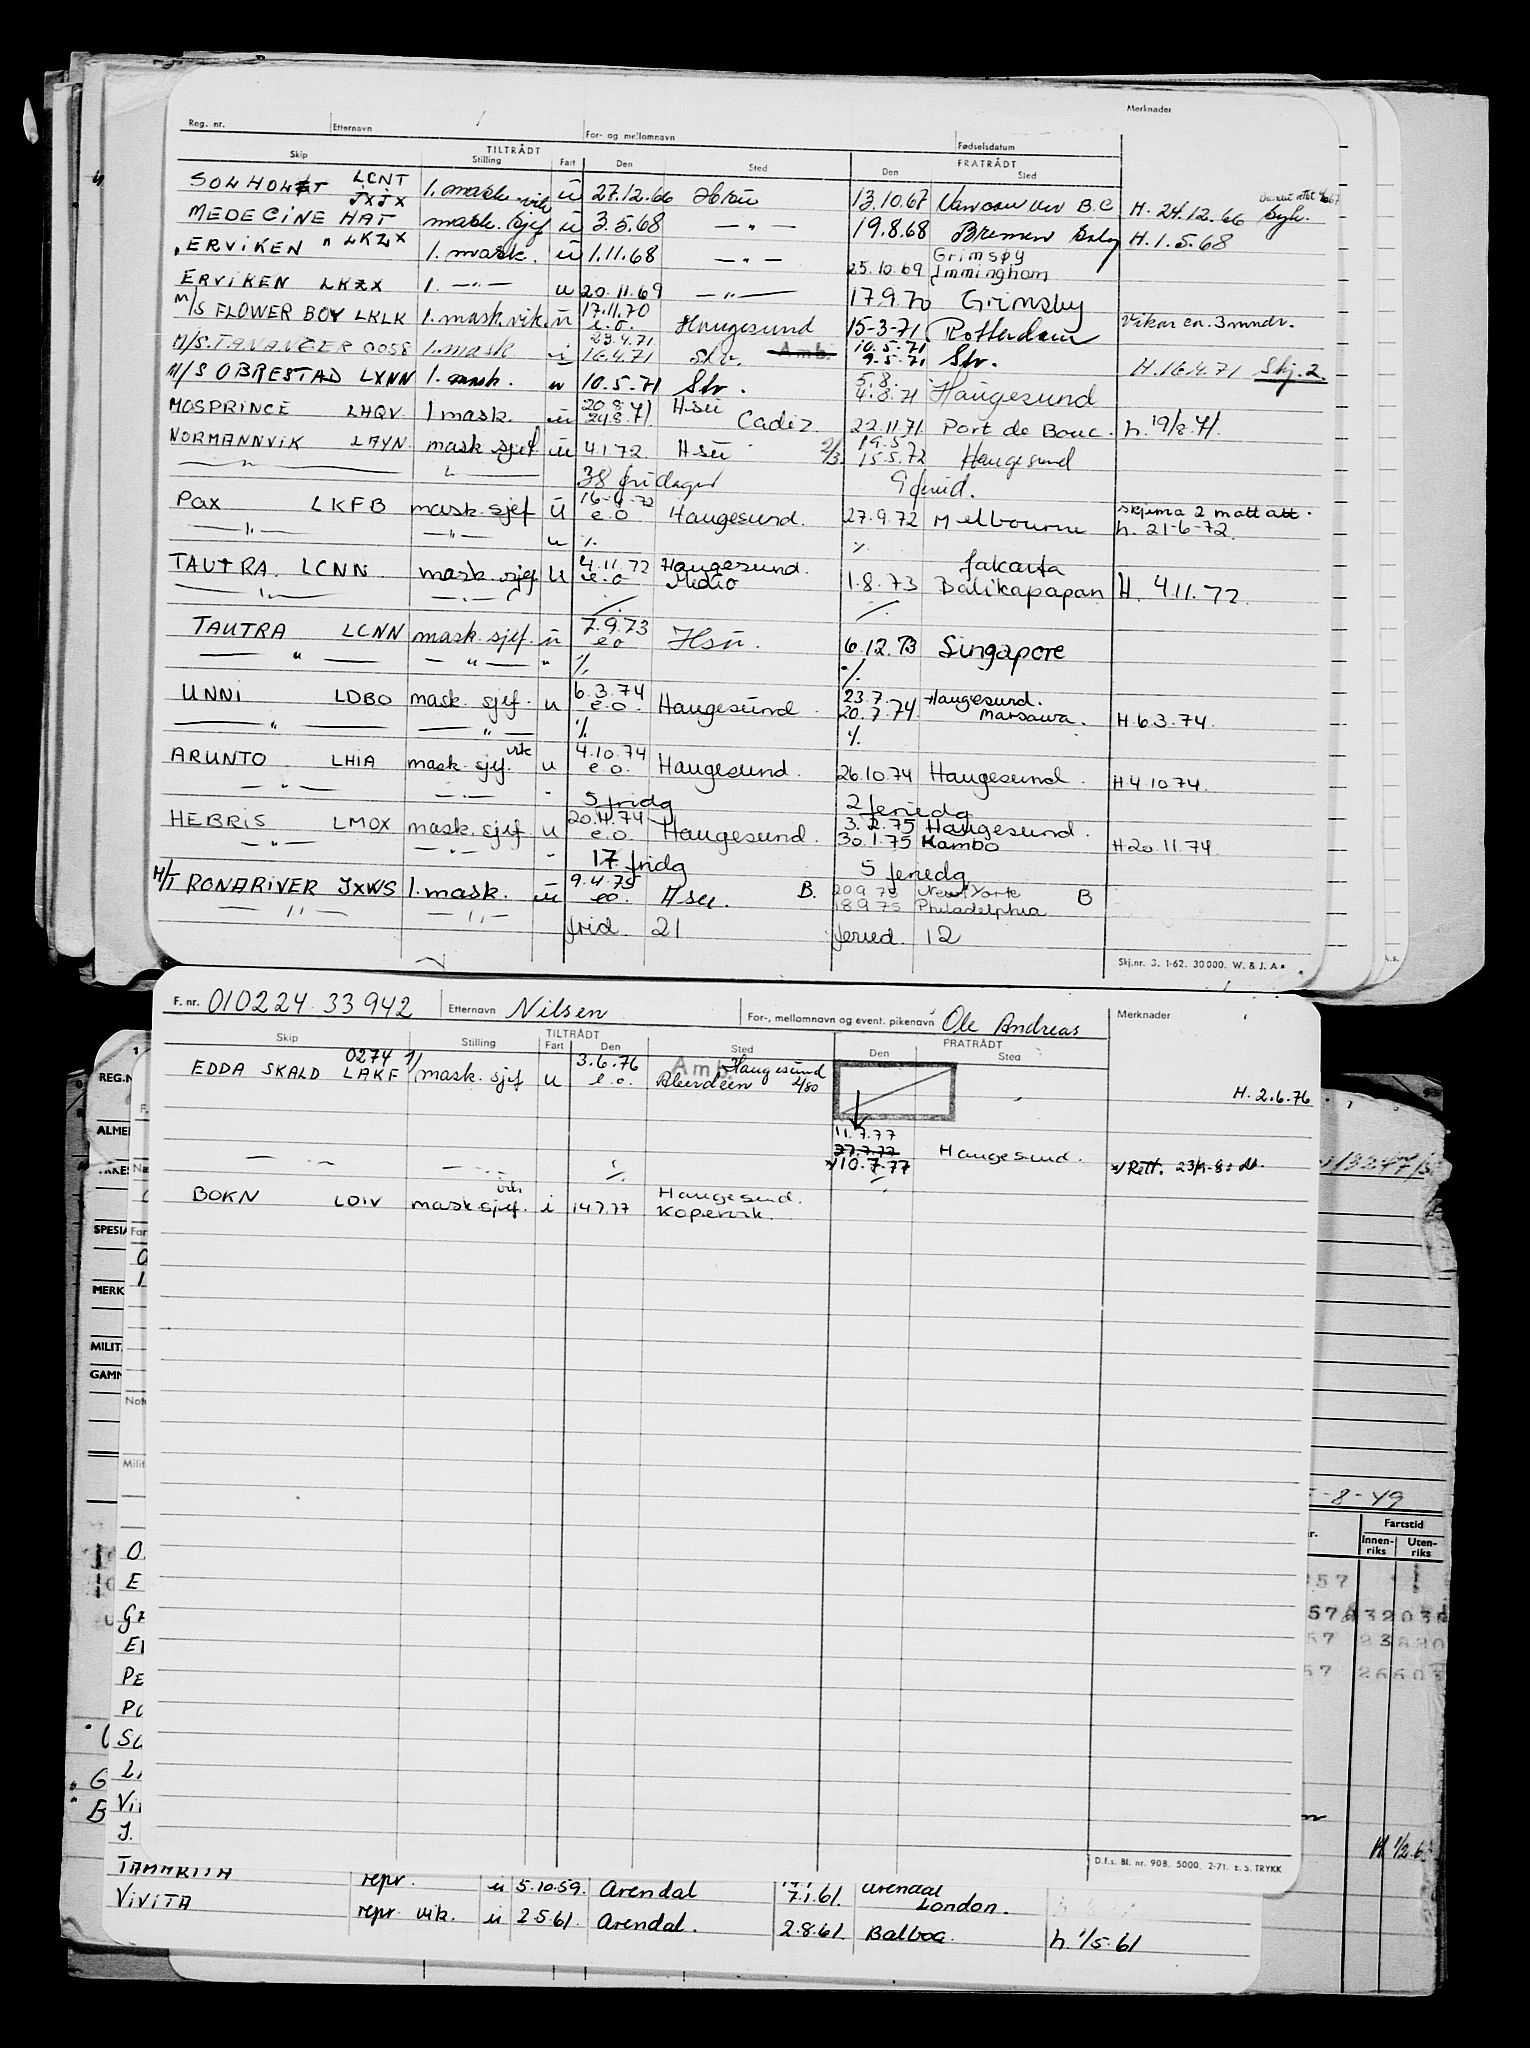 Merknader
Reg. nr. Etternavn For- og mellomnavn Fødselsdatum
TILTRÅDT FRATRÅDT
Skip Stilling Fart Den Sted Den Sted
SOLHOLT LCNT 1. mask. vik ü 27.12.66 Hsū 13.10.67 Vancouver B.C. H. 24.12.66 syk.
JXJX
MEDECINE HAT mask. sjef ü 3.5.68 — " — 19.8.68 Bremen H. 1.5.68
"ERVIKEN" LKZX 1. mask. ü 1.11.68 — " — 25.10.69 Grimsby Immingham
ERVIKEN LKZX 1. — " — u 20.11.69 — " — 17.9.70 Grimsby
M/S FLOWER BOY LKLK 1. mask. vik. ü 17.11.70 e.o. Haugesund 15-3-71 Rotterdam Vikar ca. 3 mndr.
M/S. TANANGER OOSS 1. mask i 23.4.71 16.4.71 Amb. 10.5.71 9.5.71 Stv. H. 16.4.71 Skj. 2.
M/S OBRESTAD LXNN 1. mask. u 10.5.71 Stv. 5.8. 4.8.71 Haugesund
MOSPRINCE LHQV 1 mask. ü 20.8.71 24.8.71 Hsü Cadiz 22.11.71 Port de Bouc. h. 19/8-71.
NORMANNVIK LAYN mask sjef ü 4.1.72. Hsü 2/3. 19.5 15.5.72 Haugesund
— " — 38 fridager 9 feried.
PAX LKFB mask. sjef ü 16-6-72 e.o Haugesund. 27.9.72 Melbourne skjema 2 mott att. h. 21-6-72.
— " — — " — u % %
TAUTRA. LCNN mask. sjef u 4.11.72 e.o Haugesund. 1.8.73 Jakarta Balikapapan H. 4.11.72.
— " — — " — % %
TAUTRA LCNN mask. sjef. ü 7.9.73 eo Hsü. 6.12.73 Singapore
— " — — " — " % %
UNNI LDBO mask. sjef. u 6.3.74 e.o. Haugesund. 23.7. 20.7.74. Haugesund. H. 6.3.74.
— " — — " — % %
ARUNTO LHIA mask. sjef. vik u 4.10.74 e.o. Haugesund. 26.10.74 Haugesund. H. 4.10.74.
— " — — " — " 5 fridg 2 feriedg
HEBRIS LMOX mask. sjef u 20.11.74 e.o. Haugesund. 3.2.75 Haugesund. 30.1.75 Kambo H. 20.11.74.
— " — — " — " 17 fridg 5 feriedg
M/T RONARIVER JXWS 1. mask. ü 9.4.75 eo. Hsu. B. 20.9.75 New York B
— " — — " — 18.9.75 Philadelphia
frid. 21 feried. 12
Skj.nr. 3. 1-62. 30 000. W. & J. A.
F. nr. 010224 33942 Etternavn Nilsen For-, mellomnavn og event. pikenavn Ole Andreas Merknader
TILTRÅDT FRATRÅDT
Skip Stilling Fart Den Sted Den Sted
EDDA SKALD 0274 LAKF 1/ mask. sjef u 3.6.76 e.o. Amb. Haugesund Aberdeen 4/80 H. 2.6.76
11.7.77
27.7.77
10.7.77 Haugesund. Rett. 23/1-80
— " — — " — % %
BOKN LDIV mask sjef. vik i 14.7.77 Haugesund. Kopervik.
D.f.s. Bl. nr. 90B. 5000. 2-71. E. S. TRYKK
REG.N
ALMEN
SPESIA
MERK
MILIT.
GAMM
Not
Milit
-8-49
Fartstid
Innen-riks Uten-riks
H 1/2.6
repr. ü 5.10.59. Arendal 7.1.61. Arendal London.
VIVITA repr. vik. ü 2.5.61. Arendal. 2.8.61. Balboa. h. 1/5.61